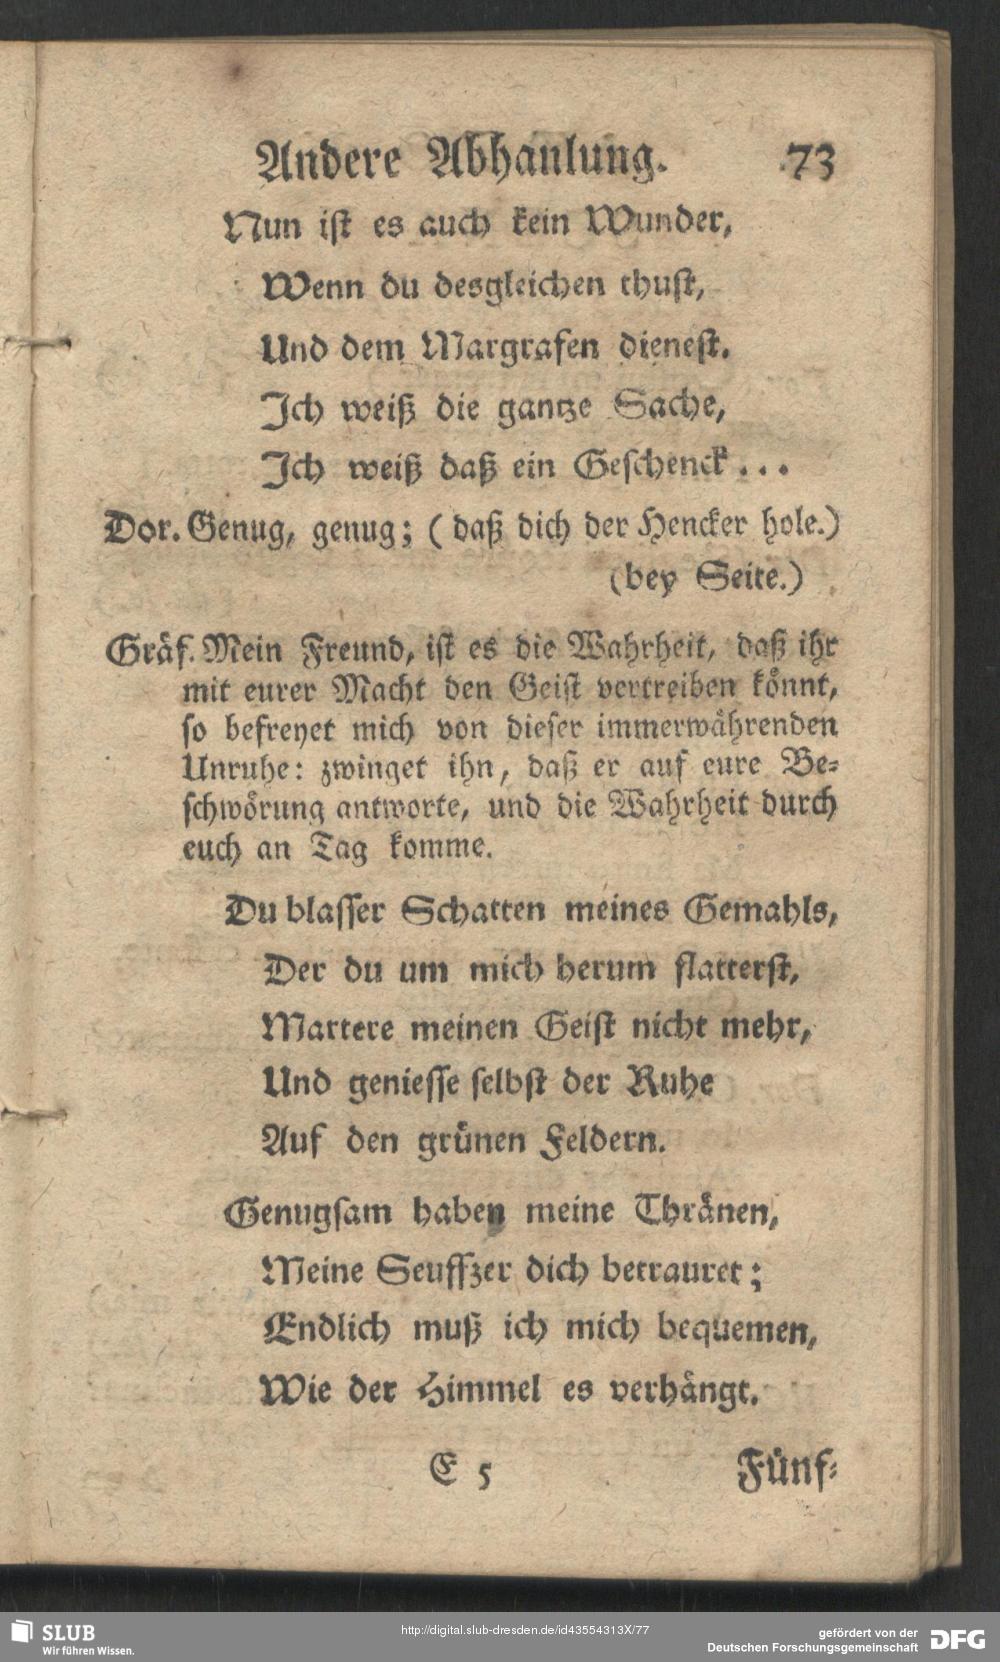 Andere Abhanlung. 73
Nun ist es auch kein Wunder,
Wenn du desgleichen thust,
Und dem Margrafen dienest.
Ich weiß die gantze Sache,
Ich weiß daß ein Geschenck...
Dor. Genug, genug; (daß dich der Hencker hole.)
(bey Seite.)
Gräf. Mein Freund, ist es die Wahrheit, daß ihr
mit eurer Macht den Geist vertreiben könnt,
so befreyet mich von dieser immerwährenden
Unruhe: zwinget ihn, daß er auf eure Be-
schwörung antworte, und die Wahrheit durch
euch an Tag komme.
Du blasser Schatten meines Gemahls,
Der du um mich herum flatterst,
Martere meinen Geist nicht mehr,
Und geniesse selbst der Ruhe
Auf den grünen Feldern.
Genugsam haben meine Thränen,
Meine Seuffzer dich betrauret;
Endlich muß ich mich bequemen,
Wie der Himmel es verhängt.
E 5 Fünf-
SLUB
Wir führen Wissen.
http://digital.slub-dresden.de/id43554313X/77
gefördert von der
Deutschen Forschungsgemeinschaft
DFG